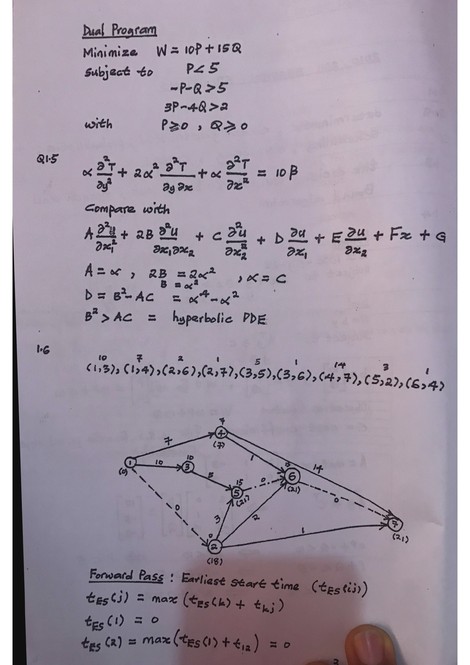 Dual Program
Minimize W = 10P + 15Q
Subject to P < 5
-P-Q > 5
3P-4Q > 2
with P ≥ 0 , Q ≥ 0
Q1.5 α ∂²T/∂y² + 2α² ∂²T/∂y∂x + α ∂²T/∂x² = 10β
Compare with
A ∂²u/∂x₁² + 2B ∂²u/∂x₁∂x₂ + C ∂²u/∂x₂² + D ∂u/∂x₁ + E ∂u/∂x₂ + Fx + G
A = α , 2B = 2α² , α = C
B = α²
D = B² - AC = α⁴ - α²
B² > AC = hyperbolic PDE
1.6
10 7 2 1 5 1 14 3 1
(1,3), (1,4), (2,6), (2,7), (3,5), (3,6), (4,7), (5,2), (6,4)
7
4
(7)
7
1
14
1
(0)
10
10
3
5
15
5
(21)
0
0
6
(21)
0
0
3
2
0
2
(18)
1
7
(21)
Forward Pass : Earliest start time (tES(ij))
tES(j) = max(tES(k) + tkj)
tES(1) = 0
tES(2) = max(tES(1) + t12) = 0